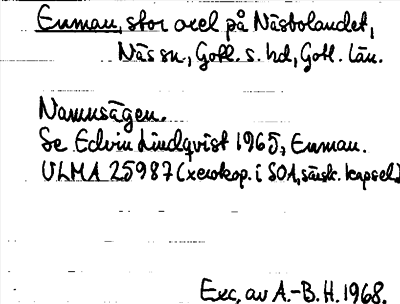 Enman, stor oxel på Näsbolandet,
Näs sn, Gotl. s. hd, Gotl. län.
Namnsägen.
Se Edvin Lindqvist 1965, Enman.
ULMA 25987 (xerokop. i SOA, särsk. kapsel)
Exc. av A.-B. H. 1968.